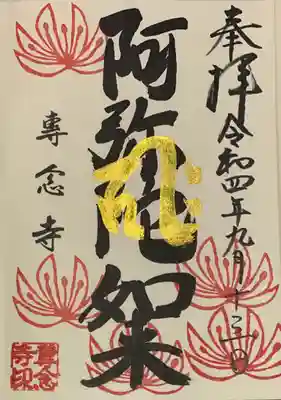 奉拝 令和四年九月十三日
阿弥陀如来
專念寺
專念寺印